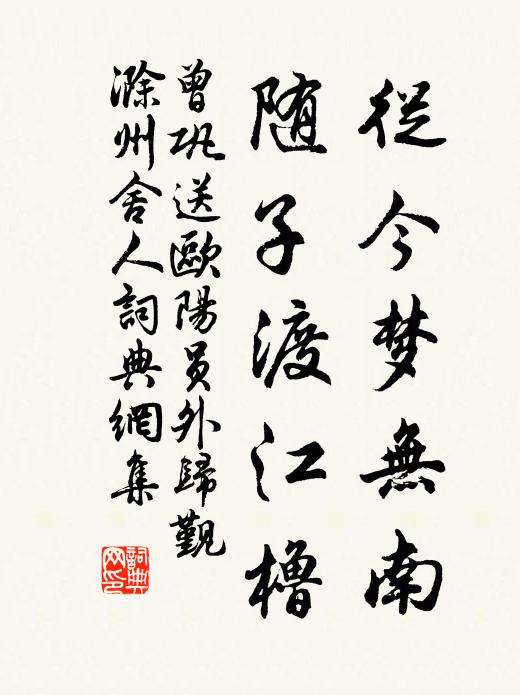 從今梦無南
随子渡江櫓
曾巩送歐陽員外歸覲
滁州舍人詞典網集
詞典网印